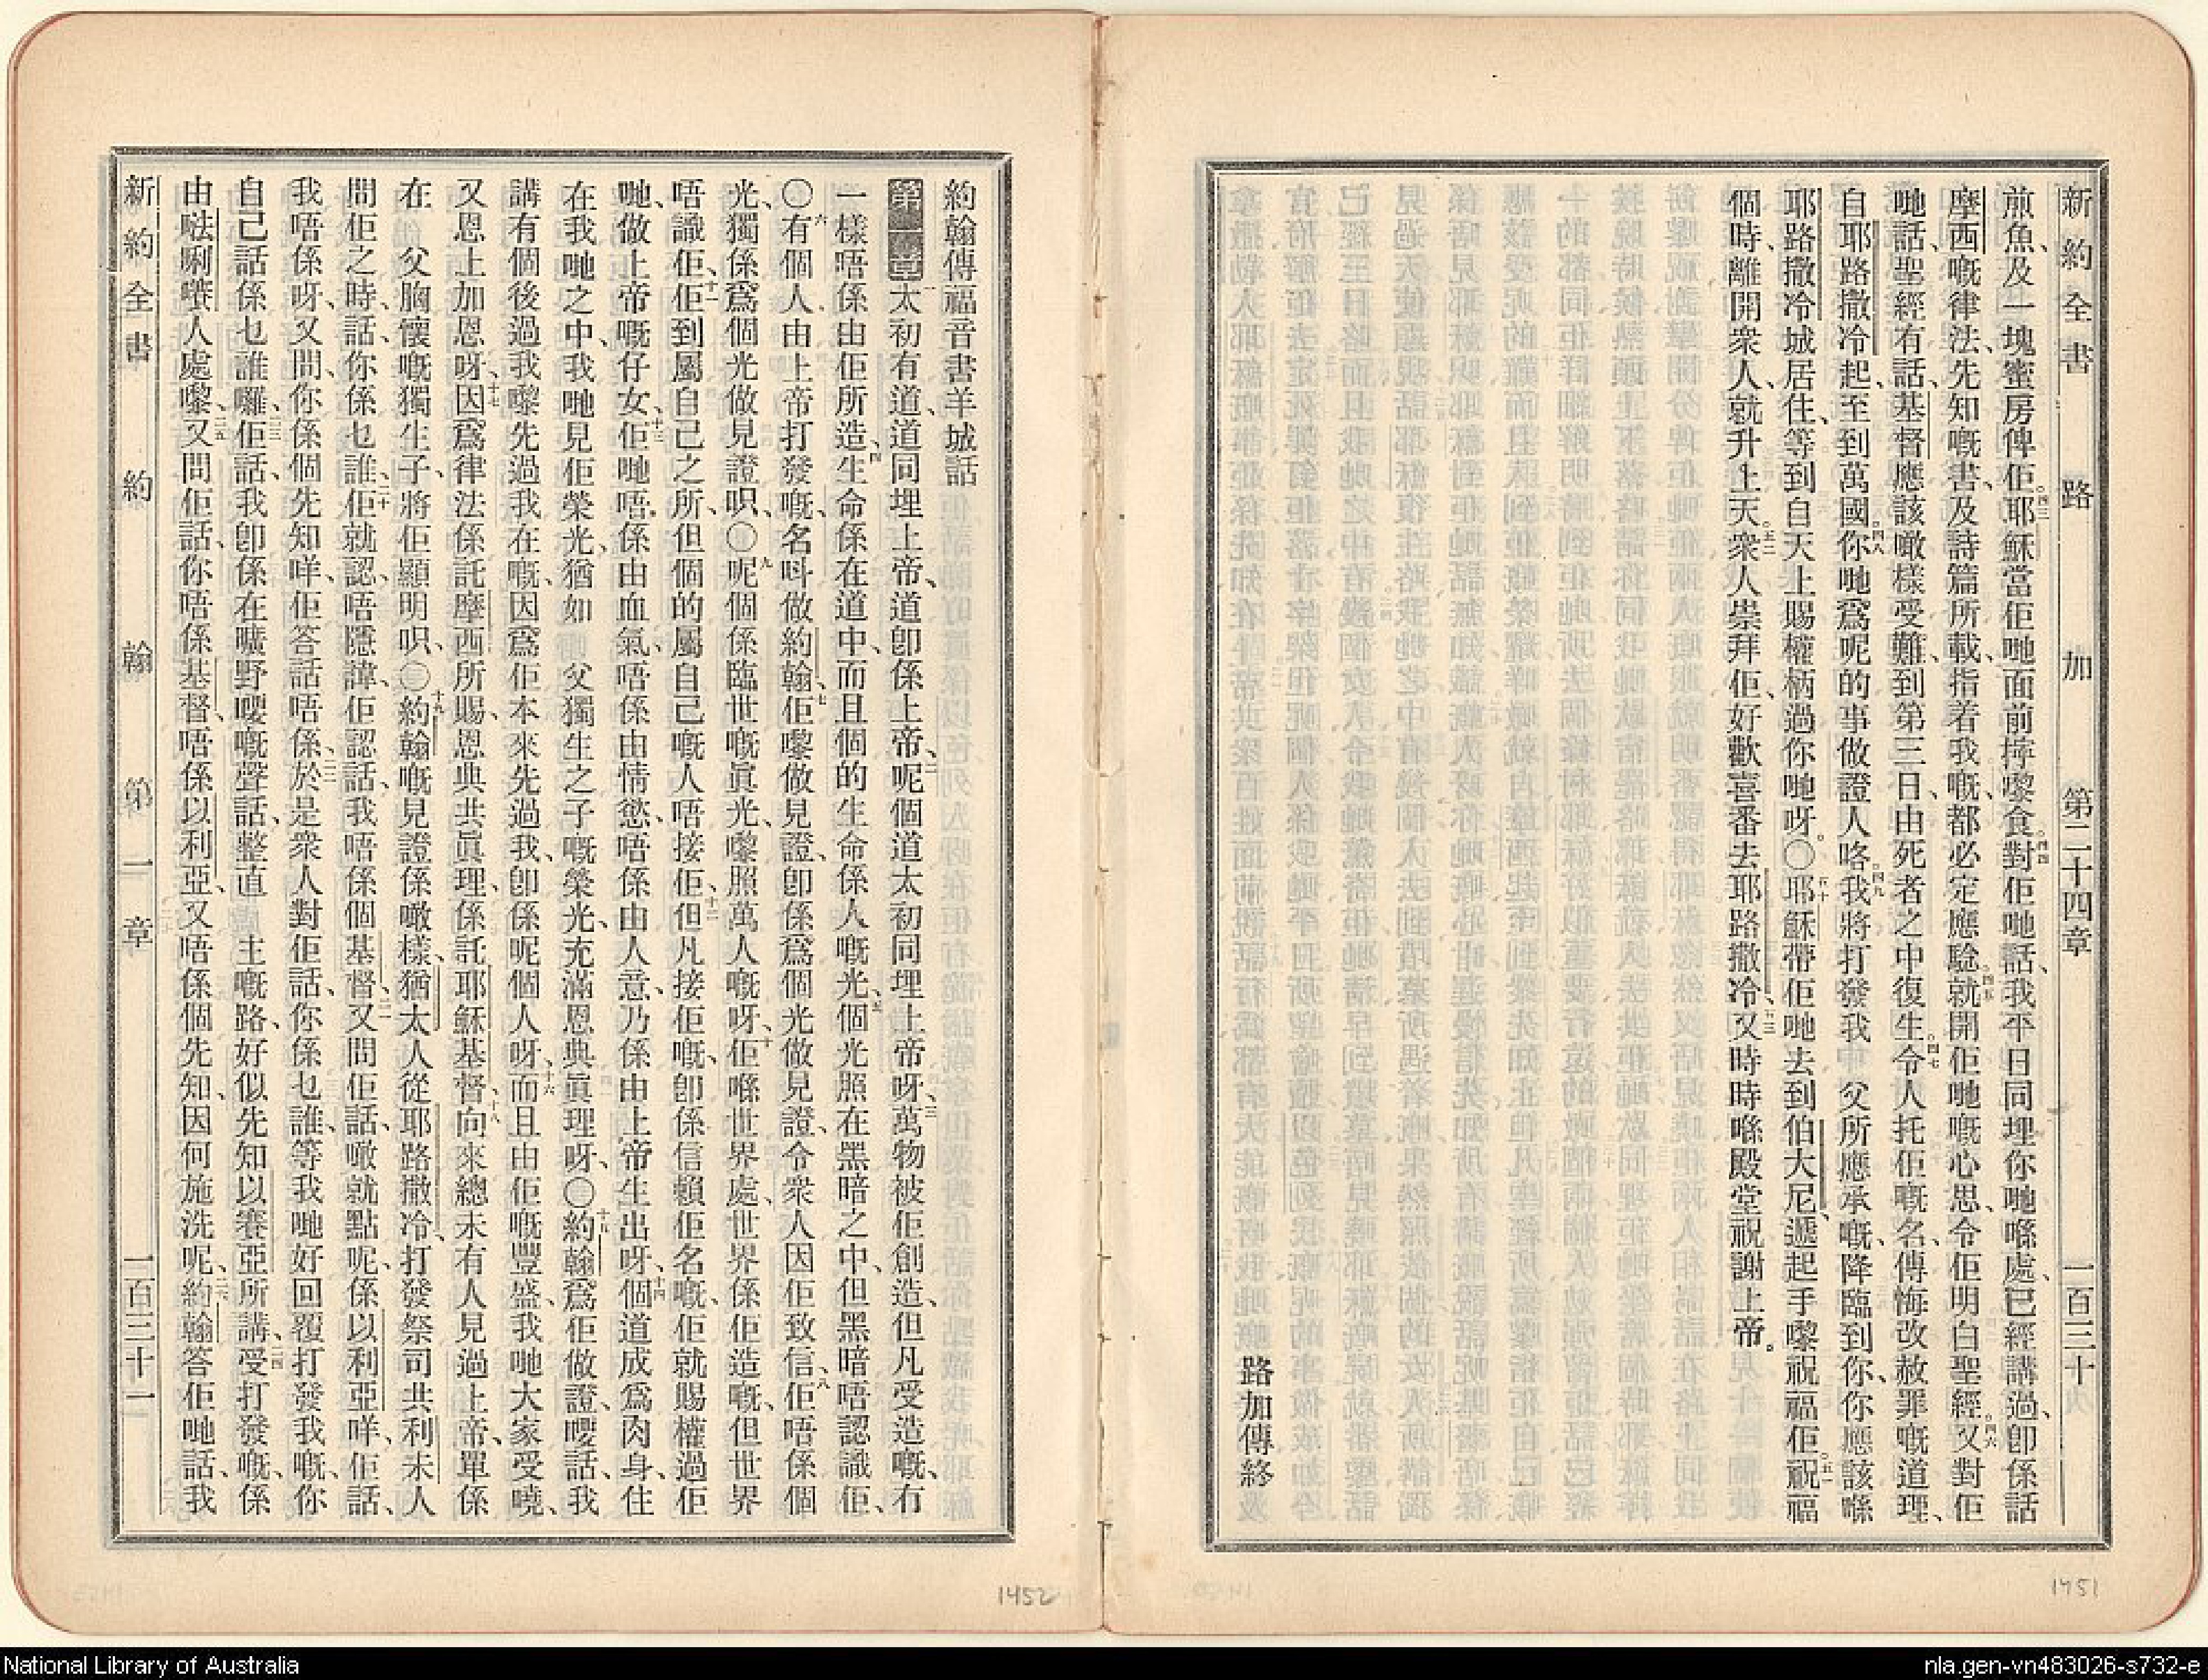 新約全書 路 加 第二十四章 一百三十
煎魚、及一塊蜜房俾佢。四三耶穌當佢哋面前攞嚟食。四四對佢哋話、我平日同埋你哋喺處、已經講過、卽係話
摩西嘅律法、先知嘅書、及詩篇所載、指着我嘅、都必定應驗。四五就開佢哋嘅心思、令佢明白聖經。四六又對佢
哋話、聖經有話、基督應該噉樣受難、到第三日、由死者之中復生。四七令人托佢嘅名、傳悔改赦罪嘅道理、
自耶路撒冷起、至到萬國。四八你哋爲呢的事做證人咯。四九我將打發我 父所應承嘅、降臨到你、你應該喺
耶路撒冷城居住、等到自天上賜權柄過你哋呀。〇五十耶穌帶佢哋去到伯大尼、遞起手嚟祝福佢。五一祝福
個時、離開衆人、就升上天。五二衆人崇拜佢、好歡喜番去耶路撒冷、五三又時時喺殿堂祝謝上帝。
路加傳終
約翰傳福音書羊城話
第一章 一太初有道、道同埋上帝、道卽係上帝、二呢個道太初同埋上帝呀、三萬物被佢創造、但凡受造嘅、冇
一樣唔係由佢所造、四生命係在道中、而且個的生命係人嘅光、五個光照在黑暗之中、但黑暗唔認識佢、
〇六有個人由上帝打發嘅、名呌做約翰、七佢嚟做見證、卽係爲個光做見證、令衆人因佢致信、八佢唔係個
光、獨係爲個光做見證呮、〇九呢個係臨世嘅眞光、嚟照萬人嘅呀、十佢喺世界處、世界係佢造嘅、但世界
唔識佢、十一佢到屬自己之所、但個的屬自己嘅人唔接佢、十二但凡接佢嘅、卽係信賴佢名嘅、佢就賜權過佢
哋、做上帝嘅仔女、十三佢哋唔係由血氣、唔係由情慾、唔係由人意、乃係由上帝生出呀、十四個道成爲肉身、住
在我哋之中、我哋見佢榮光、猶如 父獨生之子嘅榮光、充滿恩典眞理呀、〇十五約翰爲佢做證、嚶話、我
講有個後過我嚟、先過我在嘅、因爲佢本來先過我、卽係呢個人呀、十六而且由佢嘅豐盛、我哋大家受曉、
又恩上加恩呀、十七因爲律法係託摩西所賜、恩典共眞理、係託耶穌基督、十八向來總未有人見過上帝、單係
在 父胸懷嘅獨生子、將佢顯明呮、〇十九約翰嘅見證係噉樣、猶太人從耶路撒冷、打發祭司共利未人
問佢之時、話、你係乜誰、二十佢就認、唔隱諱、佢認話、我唔係個基督、二一又問佢話、噉就點呢、係以利亞咩、佢話、
我唔係呀、又問、你係個先知咩、佢答話唔係、二二於是衆人對佢話、你係乜誰、等我哋好回覆打發我嘅、你
自己話係乜誰囉、二三佢話、我卽係在曠野嚶嘅聲話、整直 主嘅路、好似先知以賽亞所講、二四受打發嘅、係
由𠵽唎㘔人處嚟、二五又問佢話、你唔係基督、唔係以利亞、又唔係個先知、因何施洗呢、二六約翰答佢哋話、我
新約全書 約 翰 第 一 章 一百三十一
1452
1451
National Library of Australia
nla.gen-vn483026-s732-e